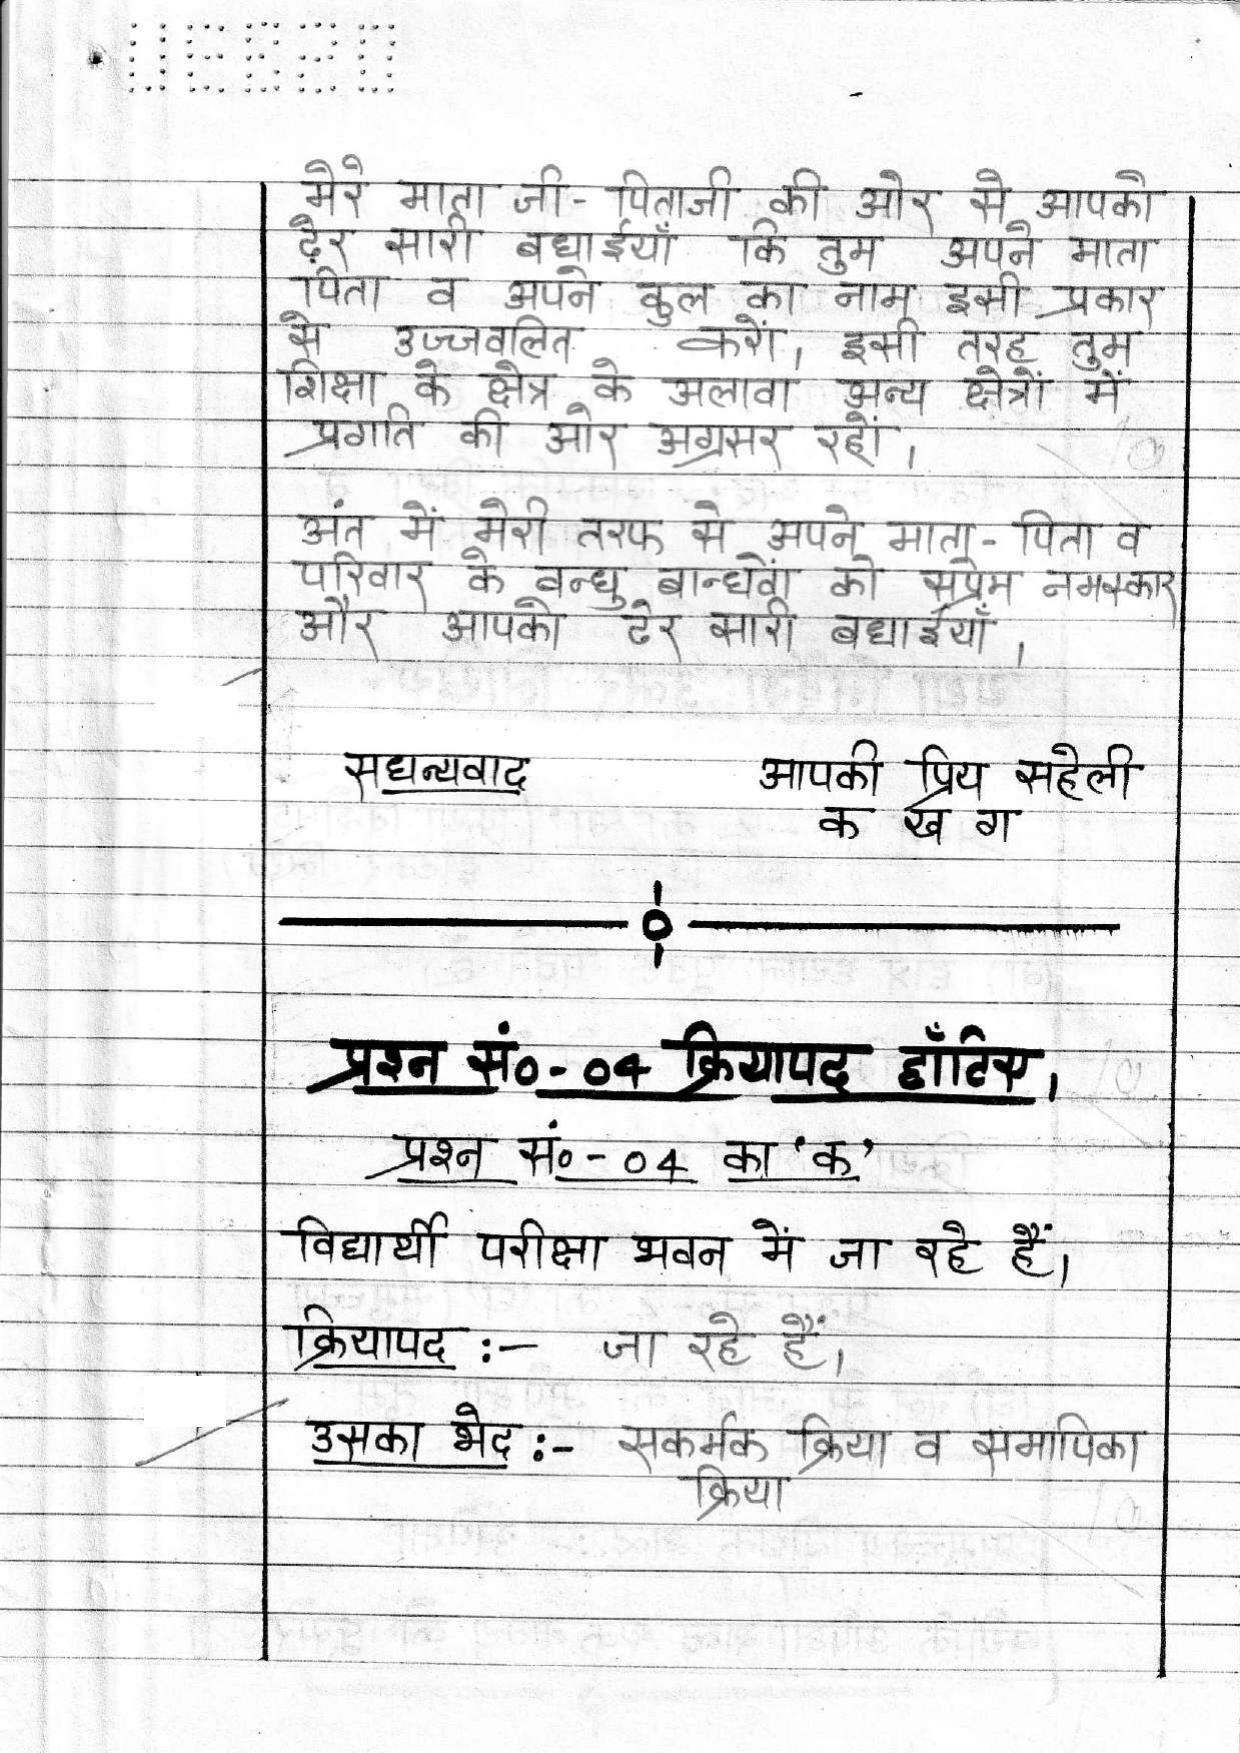 मेरे माता जी- पिताजी की ओर से आपको
ढ़ेर सारी बधाईयाँ कि तुम अपने माता
पिता व अपने कुल का नाम इसी प्रकार
से उज्जवलित करों, इसी तरह तुम
शिक्षा के क्षेत्र के अलावा अन्य क्षेत्रों में
प्रगति की ओर अग्रसर रहों।
अंत में मेरी तरफ से अपने माता- पिता व
परिवार के बन्धु बान्धवों को सप्रेम नमस्कार
और आपको ढेर सारी बधाईयाँ।
सधन्यवाद आपकी प्रिय सहेली
क ख ग
प्रश्न सं०- ०4 क्रियापद छाँटिए।
प्रश्न सं०- ०4 का 'क'
विद्यार्थी परीक्षा भवन में जा रहे हैं।
क्रियापद :- जा रहे हैं।
उसका भेद :- सकर्मक क्रिया व समापिका
क्रिया